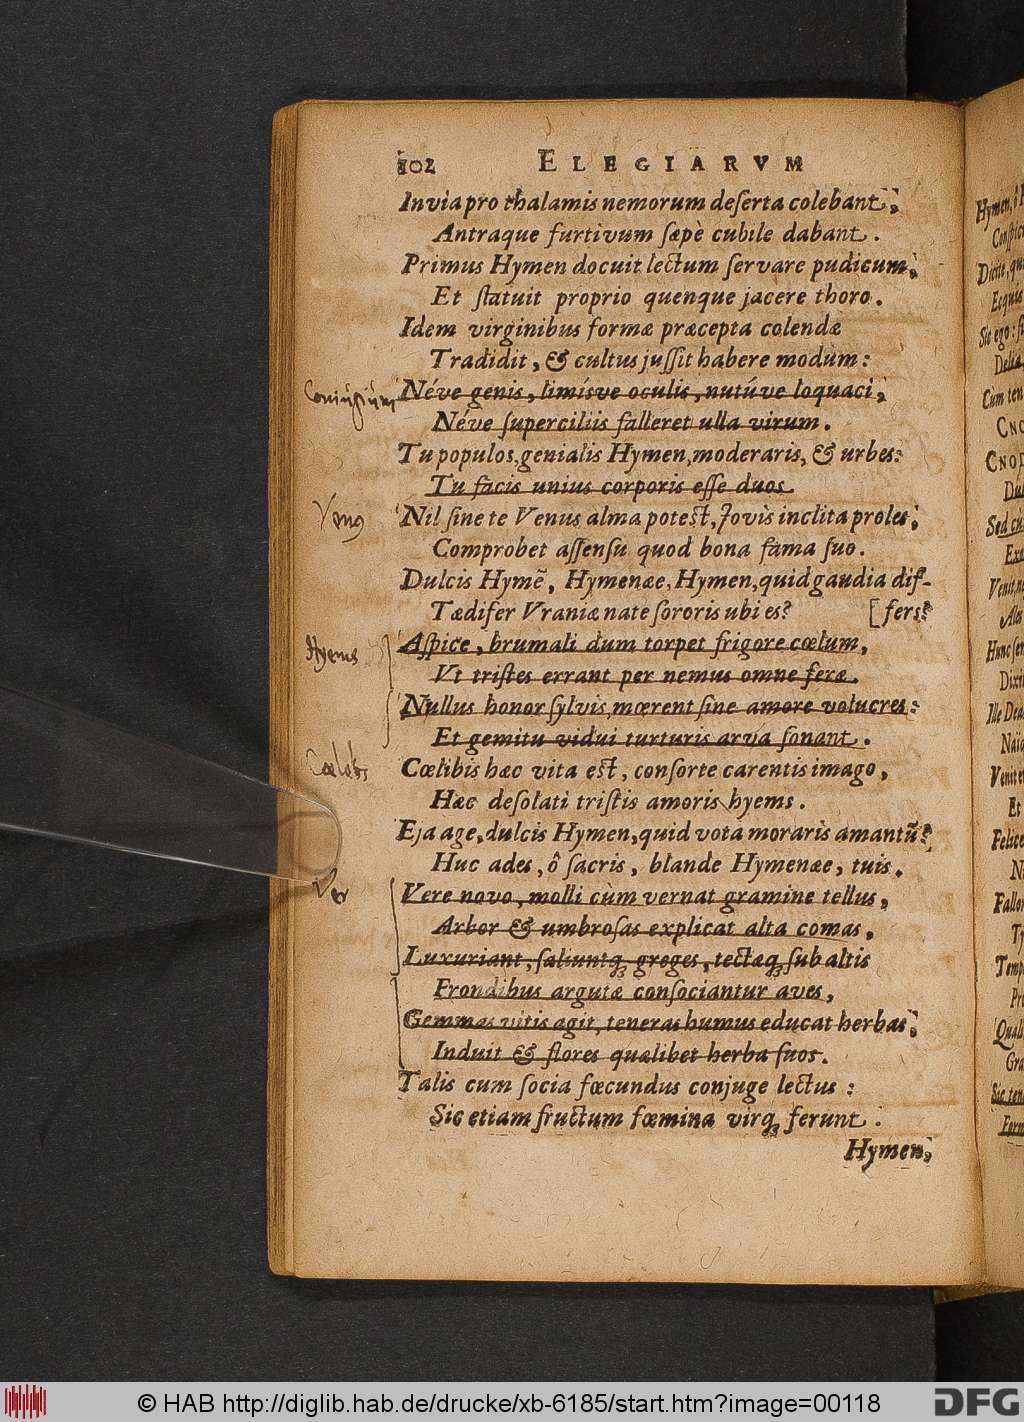 102 ELEGIARVM
Invia pro thalamis nemorum deserta colebant,
Antraque furtivum sæpè cubile dabant.
Primus Hymen docuit lectum servare pudicum,
Et statuit proprio quenque jacere thoro.
Idem virginibus formæ præcepta colendæ
Tradidit, & cultus jussit habere modum:
Coniugium
Néve genis, limísve oculis, nutúve loquaci,
Néve superciliis falleret ulla virum.
Tu populos, genialis Hymen, moderaris, & urbes:
Tu facis unius corporis esse duos.
Venus
Nil sine te Venus alma potest, Jovis inclita proles,
Comprobet assensu quod bona fama suo.
Dulcis Hymẽ, Hymenæe, Hymen, quid gaudia dif-
Tædifer Vraniæ nate sororis ubi es? [fers?
Hyems
Aspice, brumali dum torpet frigore cœlum,
Vt tristes errant per nemus omne feræ.
Nullus honor sylvis, mœrent sine amore volucres:
Et gemitu vidui turturis arva sonant.
Cœlebs
Cœlibis hæc vita est, consorte carentis imago,
Hæc desolati tristis amoris hyems.
Eja age, dulcis Hymen, quid vota moraris amantũ?
Huc ades, ô sacris, blande Hymenæe, tuis.
Ver
Vere novo, molli cùm vernat gramine tellus,
Arbor & umbrosas explicat alta comas,
Luxuriant, saliuntq; greges, tectæq; sub altis
Frondibus argutæ consociantur aves,
Gemmas vitis agit, teneras humus educat herbas,
Induit & flores quælibet herba suos.
Talis cum socia fœcundus conjuge lectus:
Sic etiam fructum fœmina virq; ferunt.
Hymen,
© HAB http://diglib.hab.de/drucke/xb-6185/start.htm?image=00118
DFG